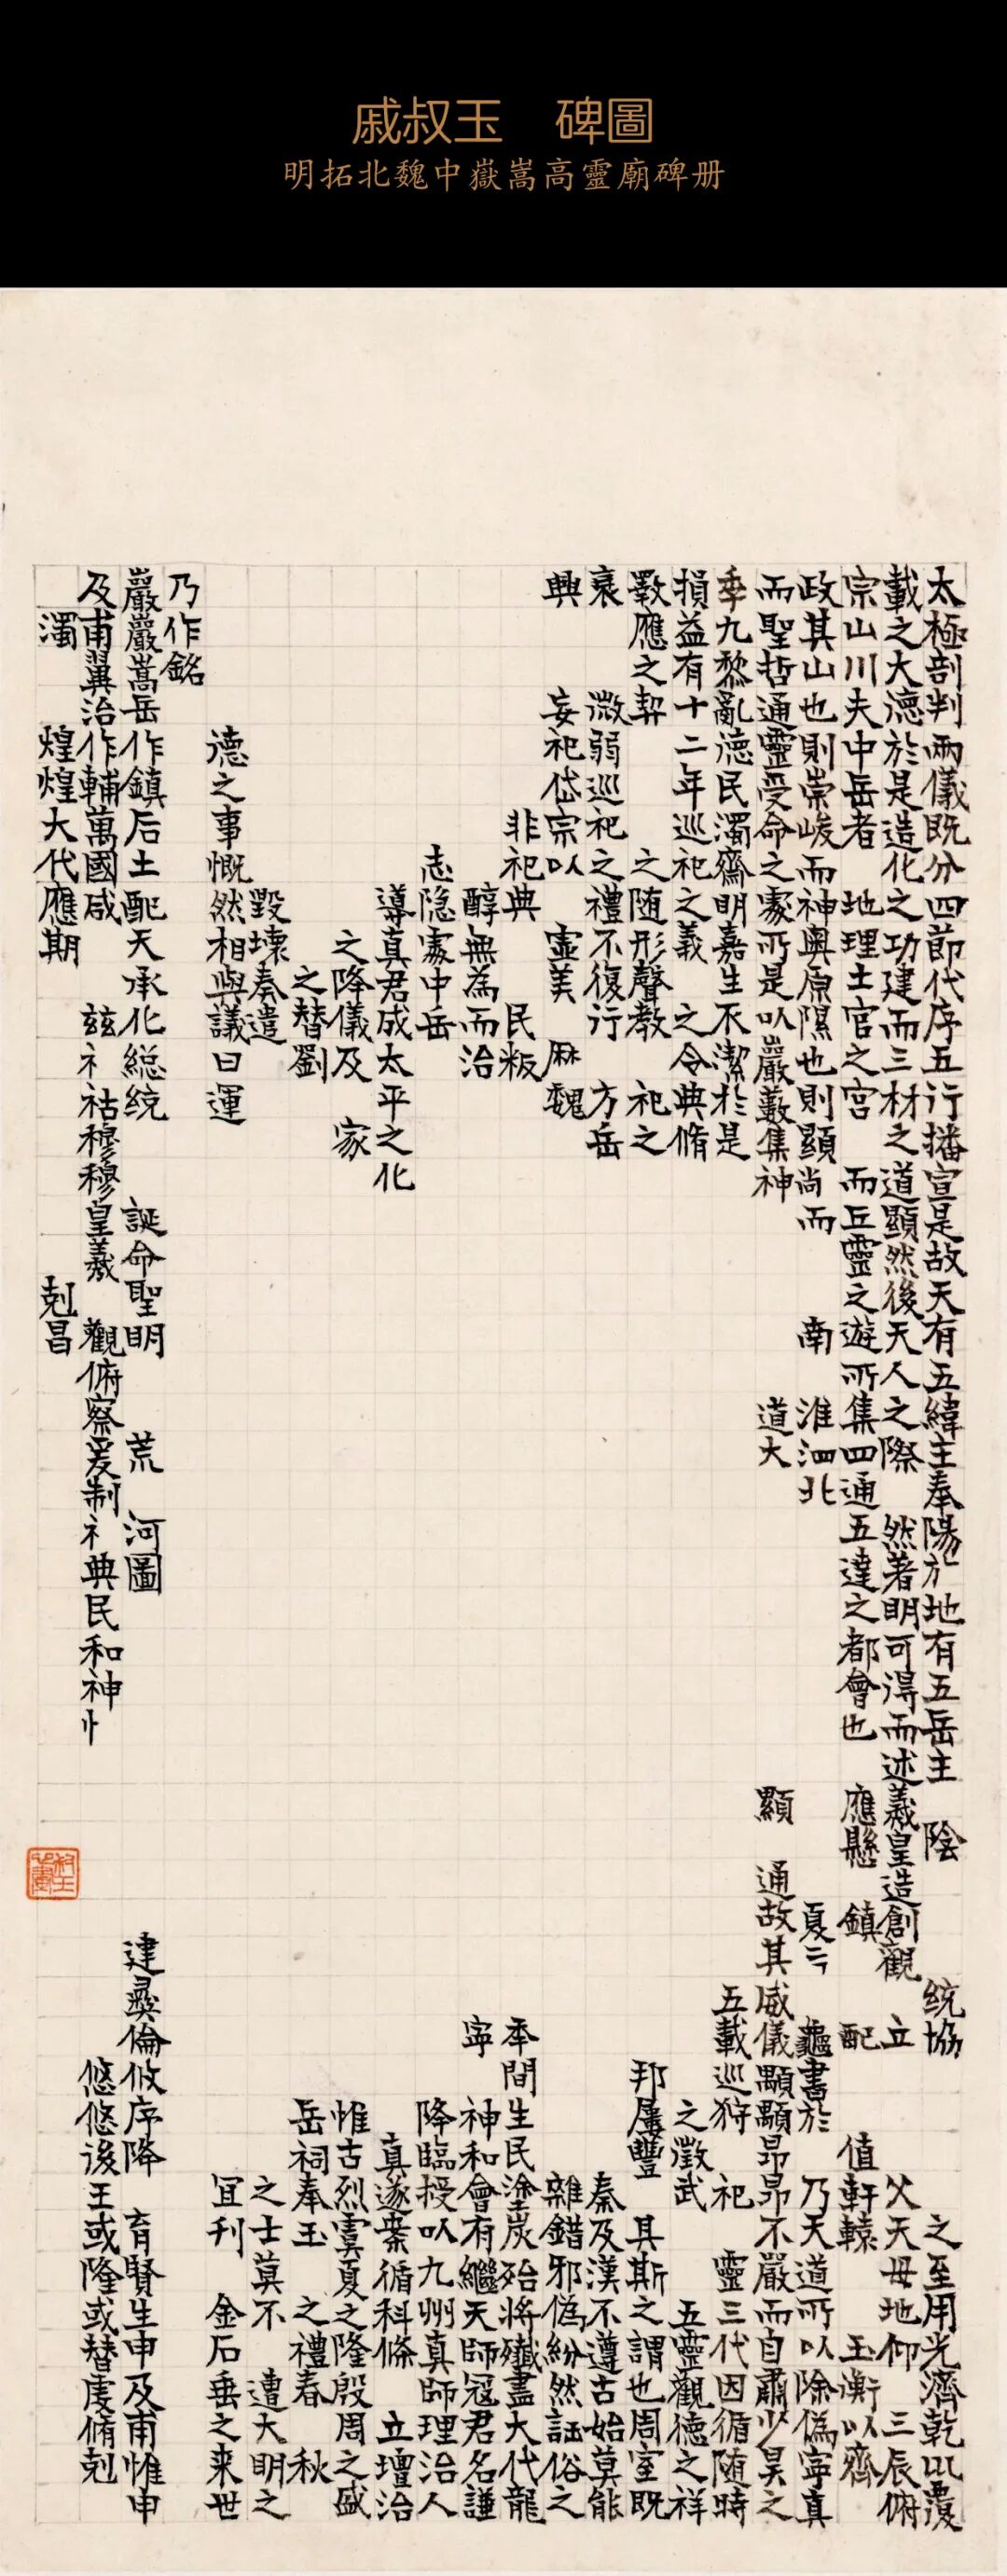 戚叔玉 碑圖
明拓北魏中嶽嵩高靈廟碑册
太極剖判兩儀既分四節代序五行播宣是故天有五緯主奉陽於地有五岳主 陰 統協 之至用光濟乾以覆
載之大德於是造化之功建而三材之道顯然後天人之際 然著明可得而述羲皇造創觀 立 父天母地仰 三辰俯
宗山川夫中岳者 地理土官之宮 而五靈之遊所集四通五達之都會也 應懸 鎮 配 值軒轅 玉衡以齊
政其山也則崇峻而神奧原隰也則顯尚而 南 淮泗北 夏 龜書於 乃天道所以除偽寧真
而聖哲通靈受命之處所是以嚴藪集神 道大 顯 通故其威儀顒顒昂昂不嚴而自肅少昊之
季九黎亂德民瀆齋明嘉生不潔於是 五載巡狩 祀 靈三代因循随時
損益有十二年巡祀之義 之令典脩 之徵武 五靈觀德之祥
斁應之契 之随形聲教 祀之 邦屢豐 其斯之謂也周室既
衰 微弱巡祀之禮不復行 方岳 秦及漢不遵古始莫能
興 妄祀岱宗以 虛美 麻魏 雜錯邪偽紛然詃俗之
非祀典 民叛 本間生民塗炭殆將殲盡大代龍
醇無為而治 寧 神和會有繼天師寇君名謙
志隐處中岳 降臨授以九州真師理治人
導真君成太平之化 真遂案循科條 立壇治
之降儀及 家 惟古烈虞夏之隆殷周之盛
之替劉 岳祠奉玉 之禮春 秋
毀壞奏遣 之士莫不 遭大明之
德之事慨然相與議曰運 宜刊 金石垂之来世
乃作銘
巖巖嵩岳作鎮后土配天承化総统 誕命聖明 荒 河圖 建彝倫攸序降 育賢生申及甫惟申
及甫翼治作輔萬國咸 兹礻祜穆穆皇羲 觀俯察爰制礻典民和神忄 悠悠後王或隆或替虔脩剋
濁 煌煌大代應期 剋昌